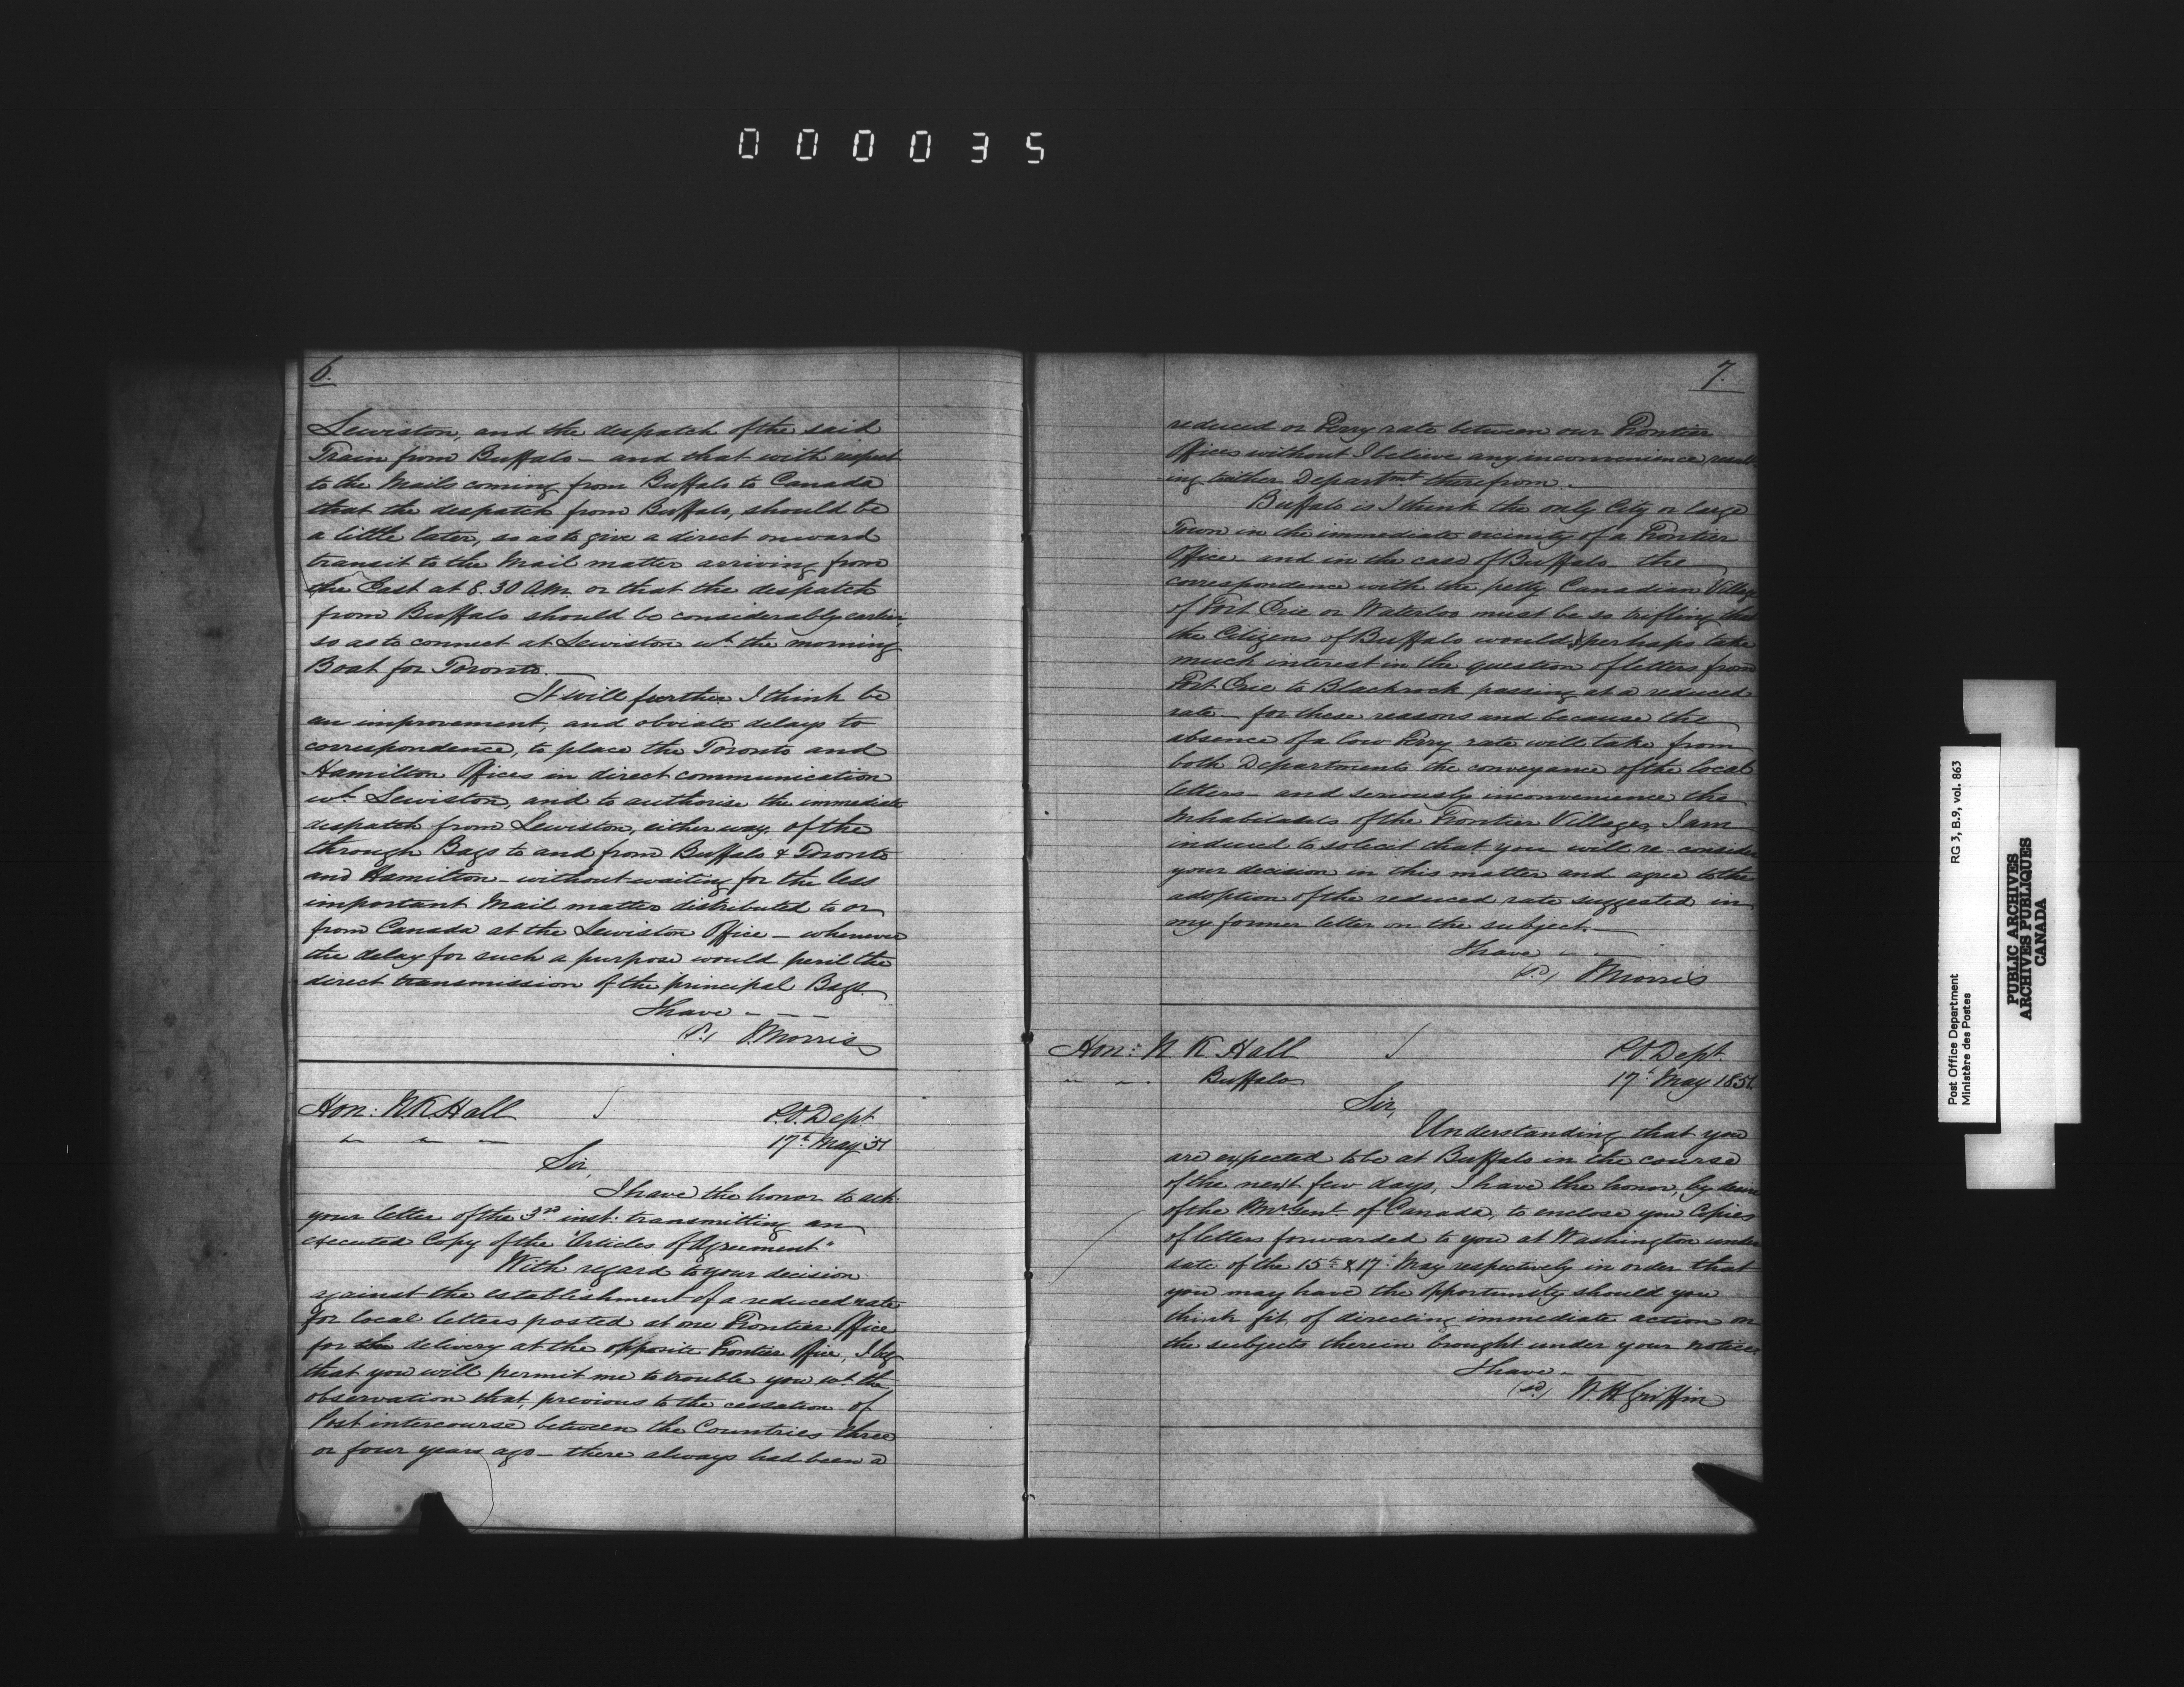 000035
6.
Lewiston, and the despatch of the said
Train from Buffalo – and that with respect
to the Mails coming from Buffalo to Canada
that the despatch from Buffalo, should be
a little later, so as to give a direct onward
transit to the Mail matter arriving from
the East at 8.30 AM. or that the despatch
from Buffalo should be considerably earlier
so as to connect at Lewiston wt. the morning
Boat for Toronto.
It will further I think be
an improvement, and obviate delays to
correspondence, to place the Toronto and
Hamilton Offices in direct communication
wt. Lewiston, and to authorise the immediate
despatch from Lewiston, either way of the
through Bags to and from Buffalo & Toronto
and Hamilton – without waiting for the less
important Mail matter distributed to or
from Canada at the Lewiston Office – whenever
the delay for such a purpose would peril the
direct transmission of the principal Bags.
I have - - -
J. Morris
Hon: N K Hall
P.O. Dept
17th May 51
Sir,
I have the honor to ack:
your letter of the 3rd inst: transmitting an
executed Copy of the "Articles of Agreement"
With regard to your decision
against the establishment of a reduced rate
for local letters posted at one Frontier Office
for the delivery at the opposite Frontier Office, I beg
that you will permit me to trouble you wt. the
observation that, previous to the cessation of
Post intercourse between the Countries three
or four years ago – there always had been a
7.
reduced or Ferry rate between our Frontier
Offices without I believe any inconvenience result-
ing to either Departmt therefrom.
Buffalo is I think the only City or large
Town in the immediate vicinity of a Frontier
Office – and in the case of Buffalo – the
correspondence with the petty Canadian Village
of Fort Erie or Waterloo must be so trifling that
the Citizens of Buffalo would perhaps take
much interest in the question of letters from
Fort Erie to Blackrock passing at a reduced
rate – for these reasons and because the
absence of a low Ferry rate will take from
both Departments the conveyance of the local
letters – and seriously inconvenience the
Inhabitants of the Frontier Villages, I am
induced to solicit that you will re-consider
your decision in this matter and agree to the
adoption of the reduced rate suggested in
my former letter on the subject.
I have - -
J Morris
Hon: N K Hall
P.O. Dept.
Buffalo
17th May 1851.
Sir,
Understanding that you
are expected to be at Buffalo in the course
of the next few days, I have the honor, by desire
of the PMr Genl. of Canada, to enclose you Copies
of letters forwarded to you at Washington under
date of the 15th & 17th May respectively in order that
you may have the opportunity should you
think fit, of directing immediate action on
the subjects therein brought under your notice.
I have -
(sd) W. H. Griffin
Post Office Department
Ministère des Postes
RG 3, B.9, vol. 863
PUBLIC ARCHIVES
ARCHIVES PUBLIQUES
CANADA